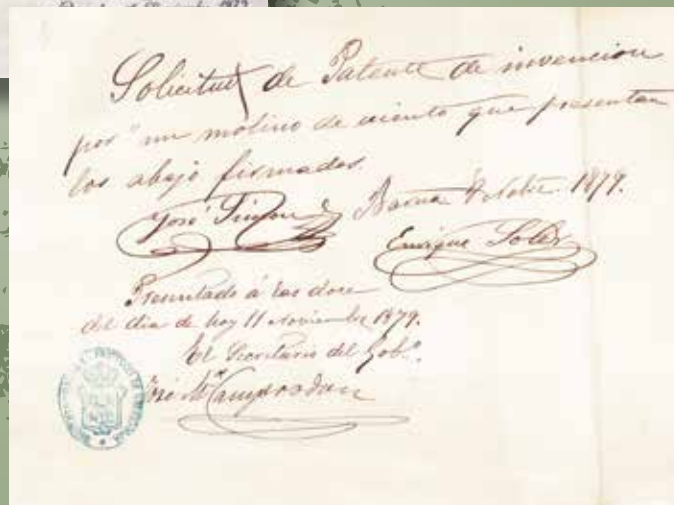 Solicitud de Patente de invencion
por "un molino de viento que presentan
los abajo firmados.
José Barna 8 Nobre. 1879.
Enrique Soler
Presentado á las doce
del dia de hoy 11 Noviembre 1879.
El Secretario del Gobº.
José Mª Camprodon